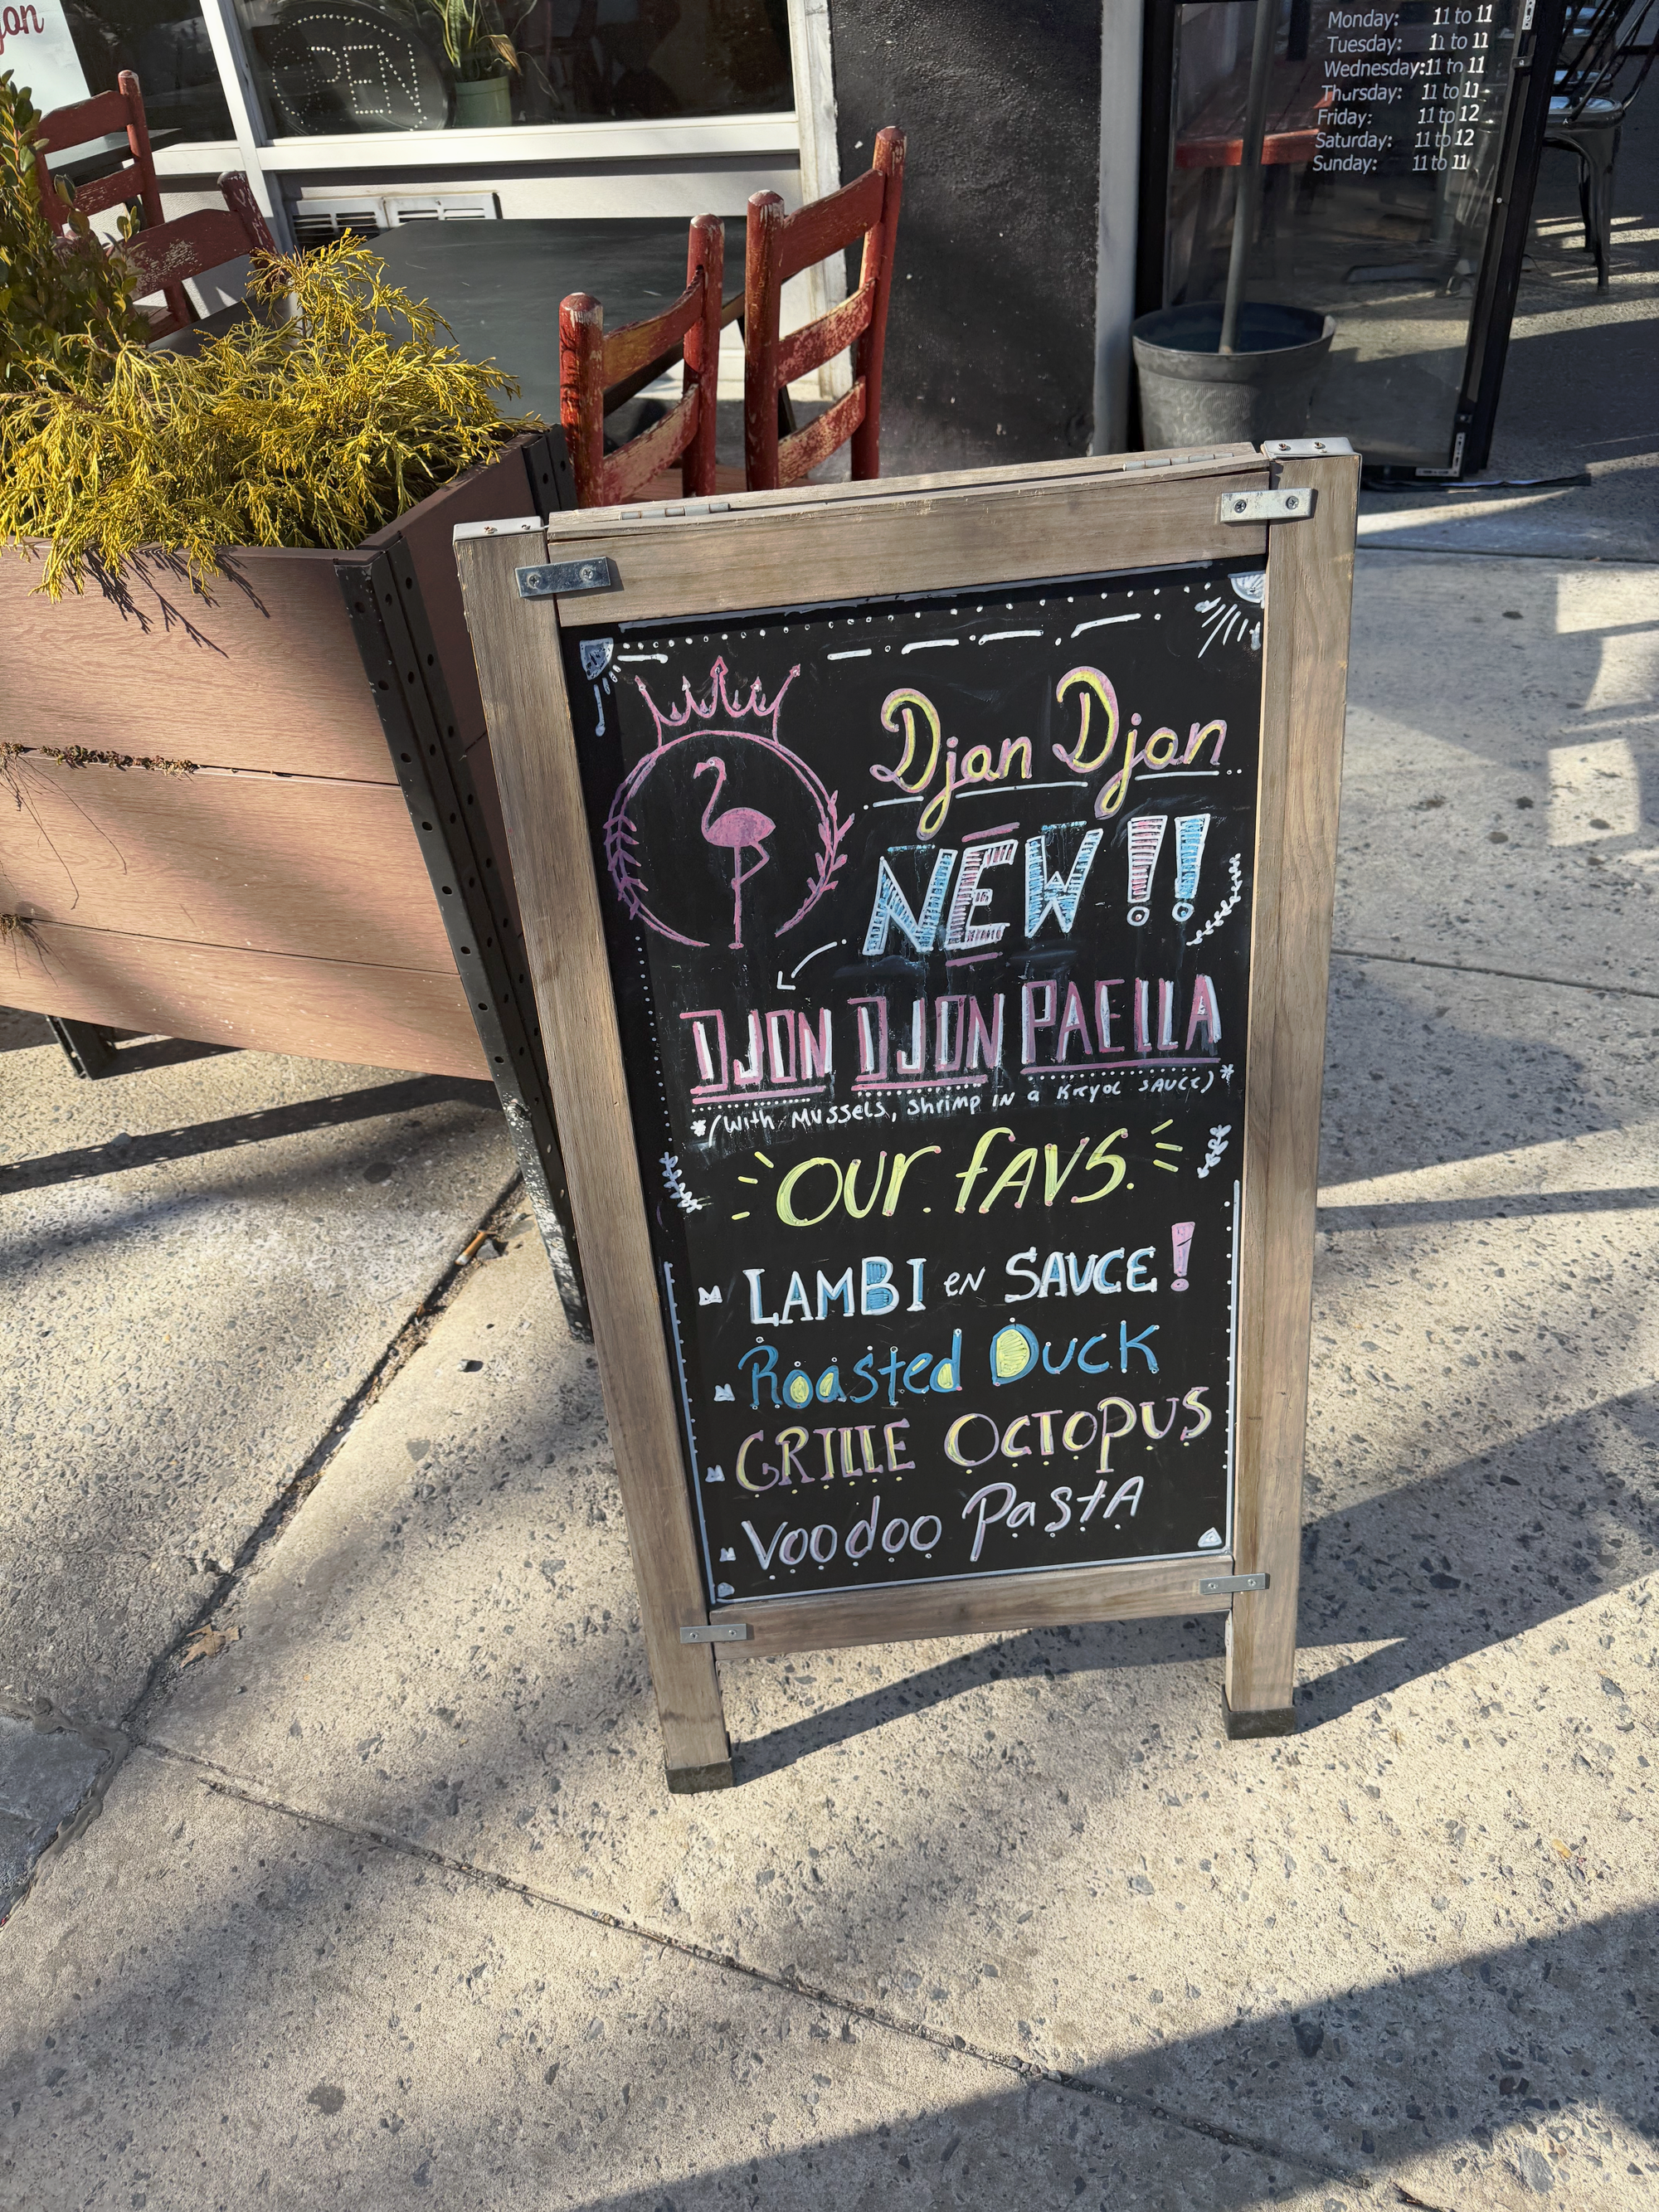 jon
OPEN
Monday: 11 to 11
Tuesday: 11 to 11
Wednesday: 11 to 11
Thursday: 11 to 11
Friday: 11 to 12
Saturday: 11 to 12
Sunday: 11 to 11
Djon Djon
NEW!!
DJON DJON PAELLA
*(With Mussels, Shrimp in a Kreyol sauce)*
Our favs.
LAMBI en SAUCE!
Roasted Duck
GRILLE OCTOPUS
Voodoo Pasta